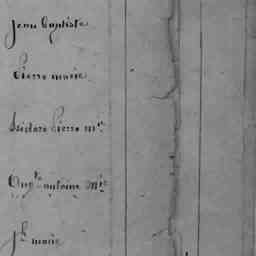 Jean Baptiste
Pierre marie
Isidore Pierre Mie
Augte antoine Mie
Jh marie